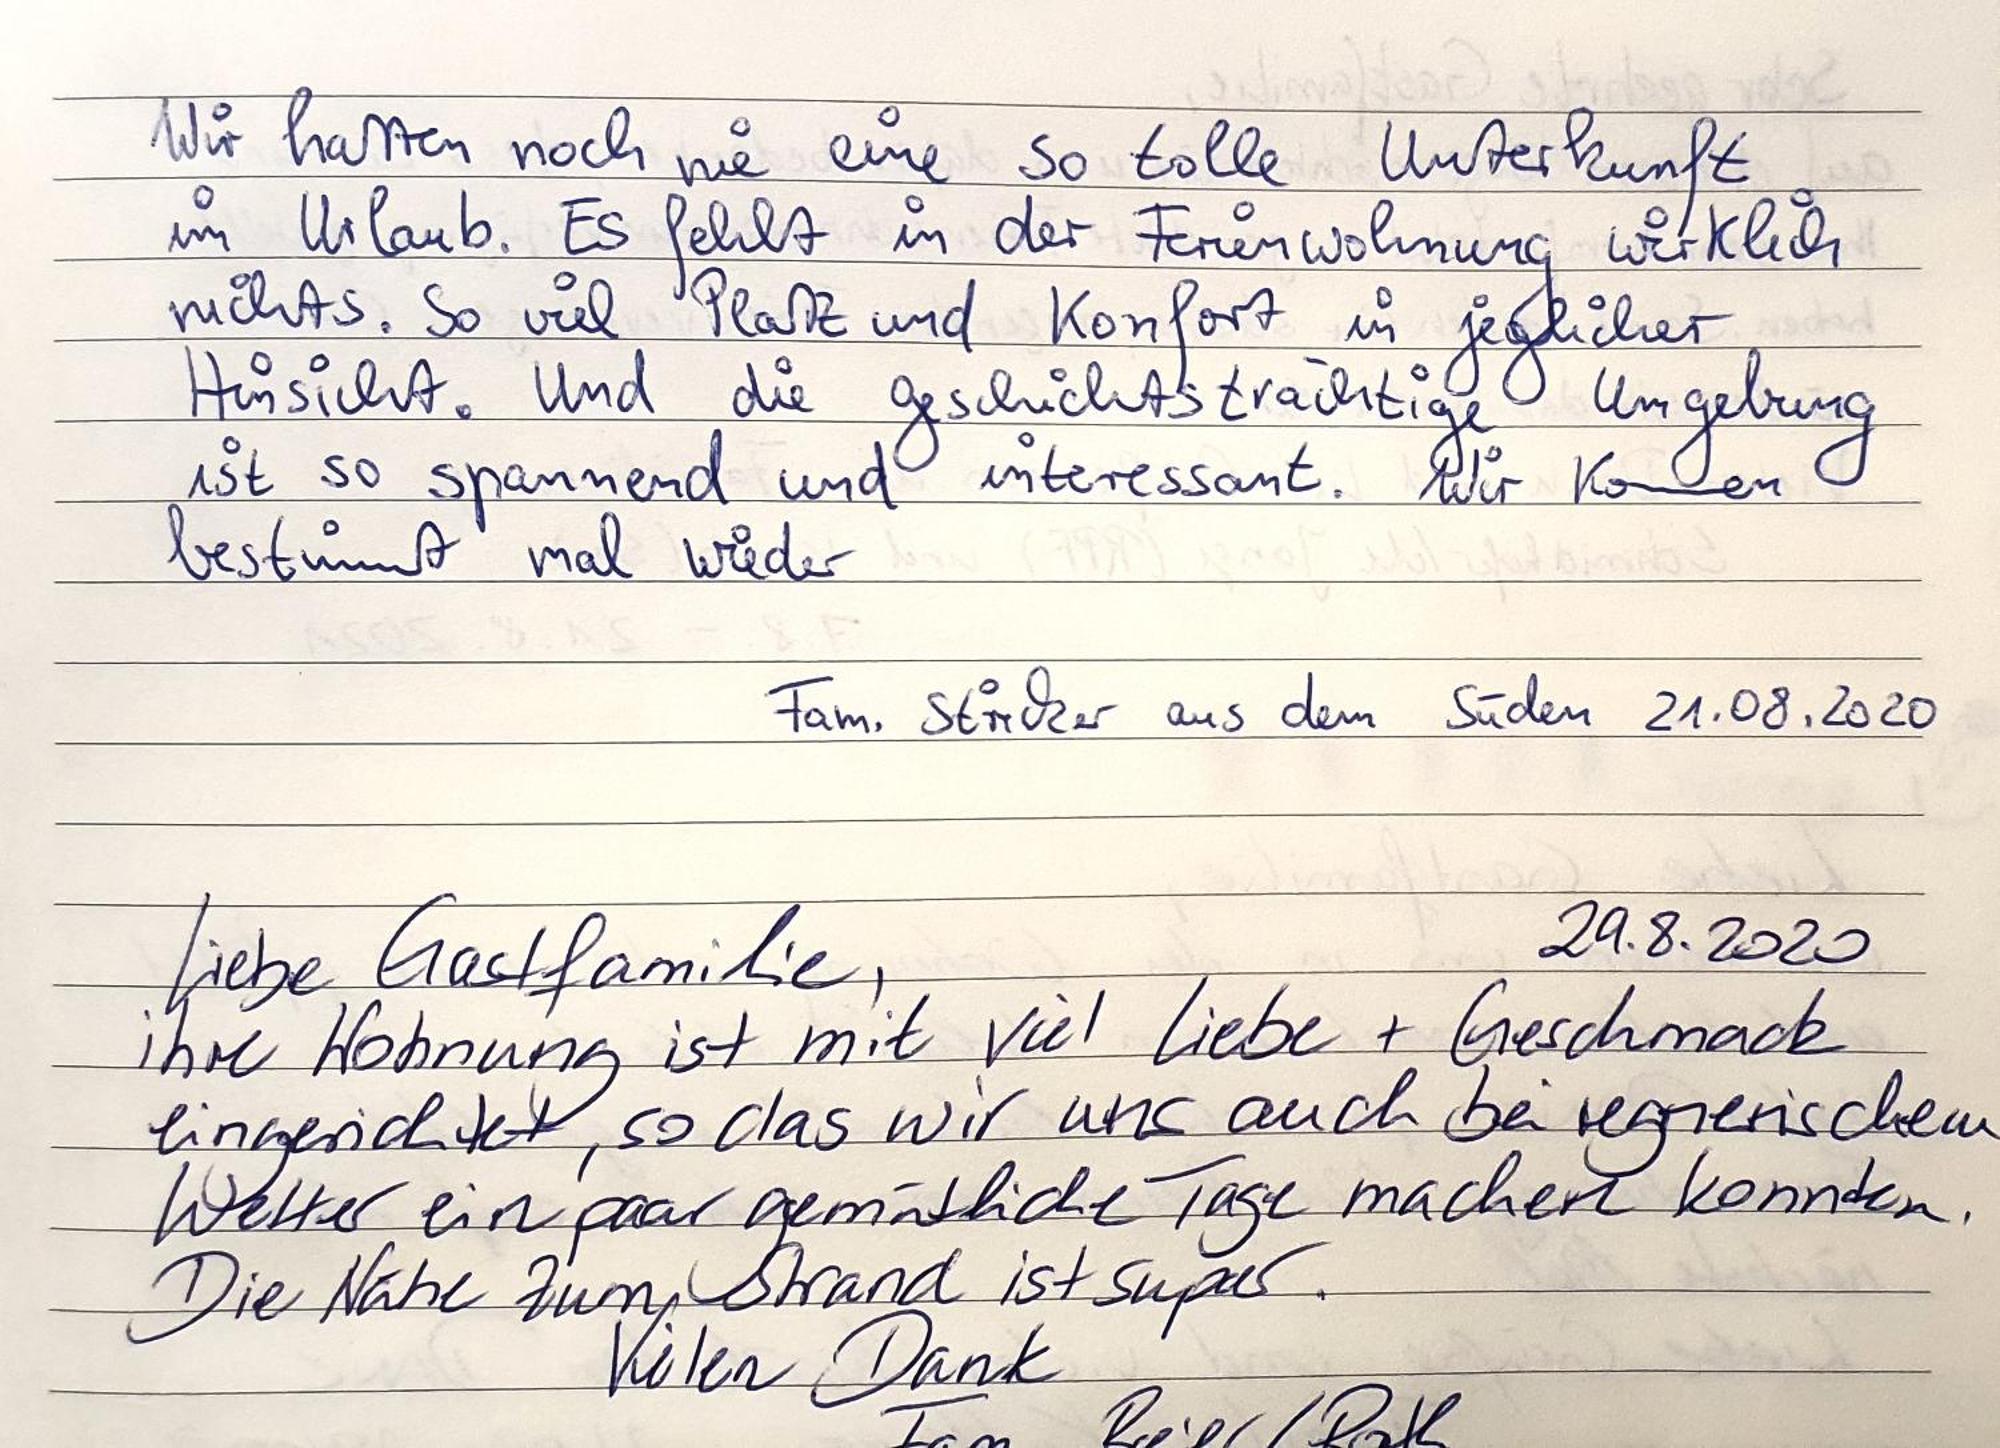 Wir hatten noch nie eine so tolle Unterkunft
im Urlaub. Es fehlt in der Ferienwohnung wirklich
nichts. So viel Platz und Konfort in jeglicher
Hinsicht. Und die geschichtsträchtige Umgebung
ist so spannend und interessant. Wir kommen
bestimmt mal wieder
Fam. Stricker aus dem Süden 21.08.2020
Liebe Gastfamilie, 29.8.2020
ihre Wohnung ist mit viel Liebe + Geschmack
eingerichtet, so das wir uns auch bei regnerischem
Wetter ein paar gemütliche Tage machen konnten.
Die Nähe zum Strand ist super.
Vielen Dank
Fam.